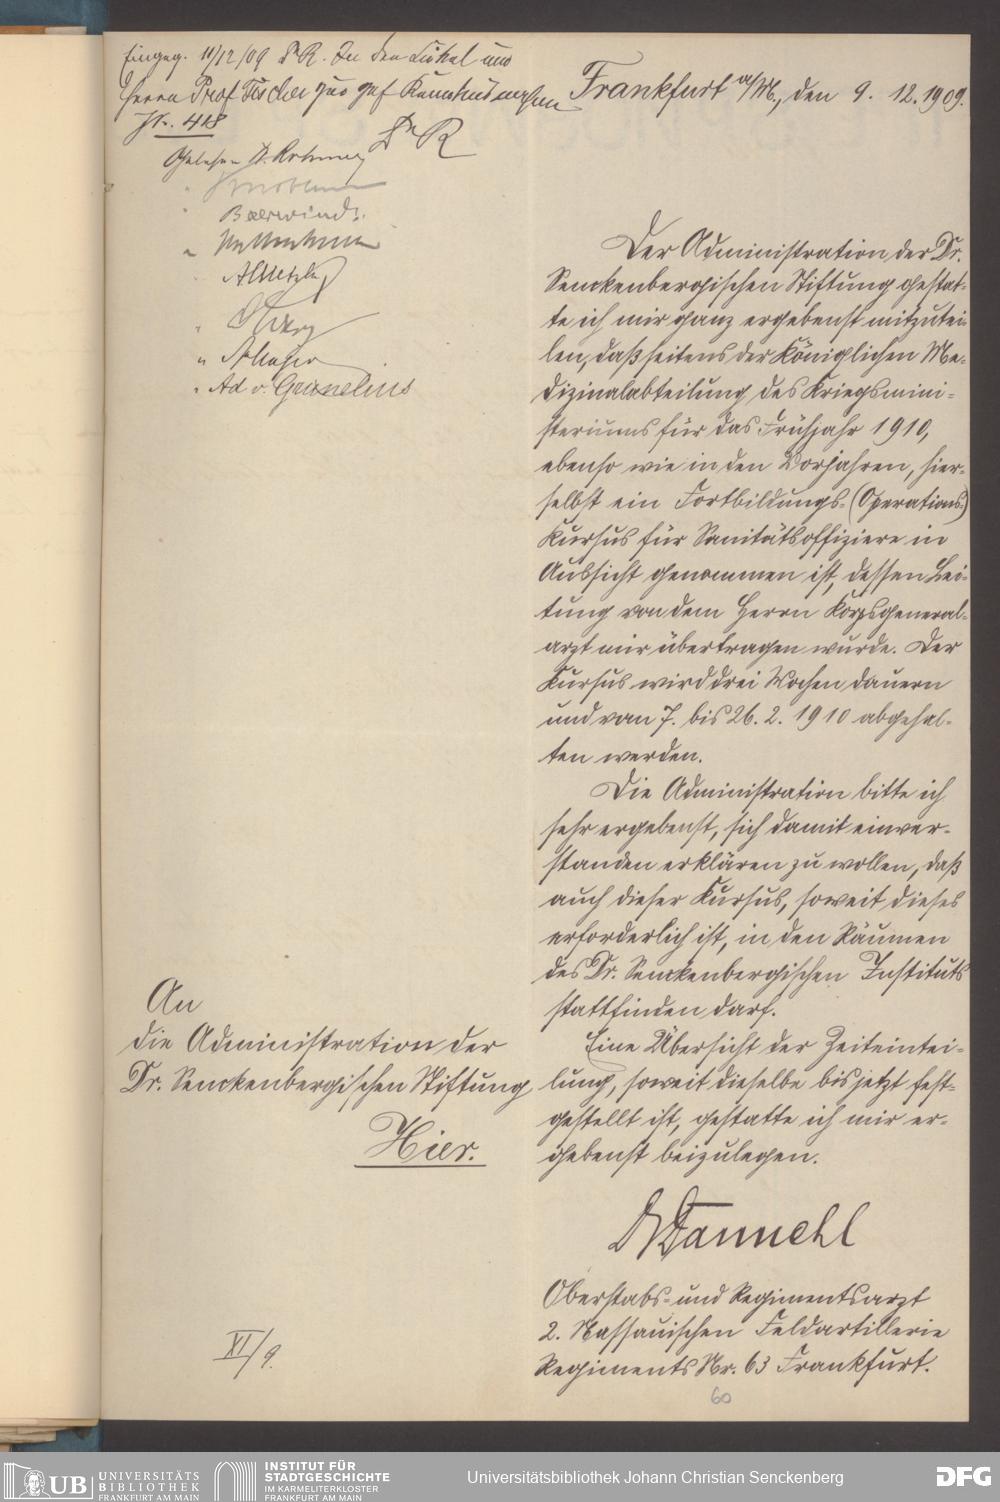 Eingeg. 11/12/09 Dr R. In den Zirkel und
Herrn Prof Fischer zur gef Kenntnisnahme
Jr. 418
Dr R
Gelesen
Baerwindt.
A Metzler
Ad v. Grunelius
Frankfurt a/M., den 9. 12. 1909.
Der Administration der Dr.
Senckenbergischen Stiftung gestat-
te ich mir ganz ergebenst mitzutei-
len, daß seitens der Königlichen Me-
dizinalabteilung des Kriegsmini-
steriums für das Frühjahr 1910,
ebenso wie in den Vorjahren, hier-
selbst ein Fortbildungs-(Operations-)
Kursus für Sanitätsoffiziere in
Aussicht genommen ist, dessen Lei-
tung von dem Herrn Korpsgeneral-
arzt mir übertragen wurde. Der
Kursus wird drei Wochen dauern
und vom 7. bis 26. 2. 1910 abgehal-
ten werden.
Die Administration bitte ich
sehr ergebenst, sich damit einver-
standen erklären zu wollen, daß
auch dieser Kursus, soweit dieses
erforderlich ist, in den Räumen
des Dr. Senckenbergischen Instituts
stattfinden darf.
Eine Übersicht der Zeiteintei-
lung, soweit dieselbe bis jetzt fest-
gestellt ist, gestatte ich mir er-
gebenst beizulegen.
Dr Dannehl
Oberstabs- und Regimentsarzt
2. Nassauischen Feldartillerie
Regiments Nr. 63 Frankfurt.
An
die Administration der
Dr. Senckenbergischen Stiftung
Hier.
XI/9.
60
UB UNIVERSITÄTS
BIBLIOTHEK
FRANKFURT AM MAIN
INSTITUT FÜR
STADTGESCHICHTE
IM KARMELITERKLOSTER
FRANKFURT AM MAIN
Universitätsbibliothek Johann Christian Senckenberg
DFG